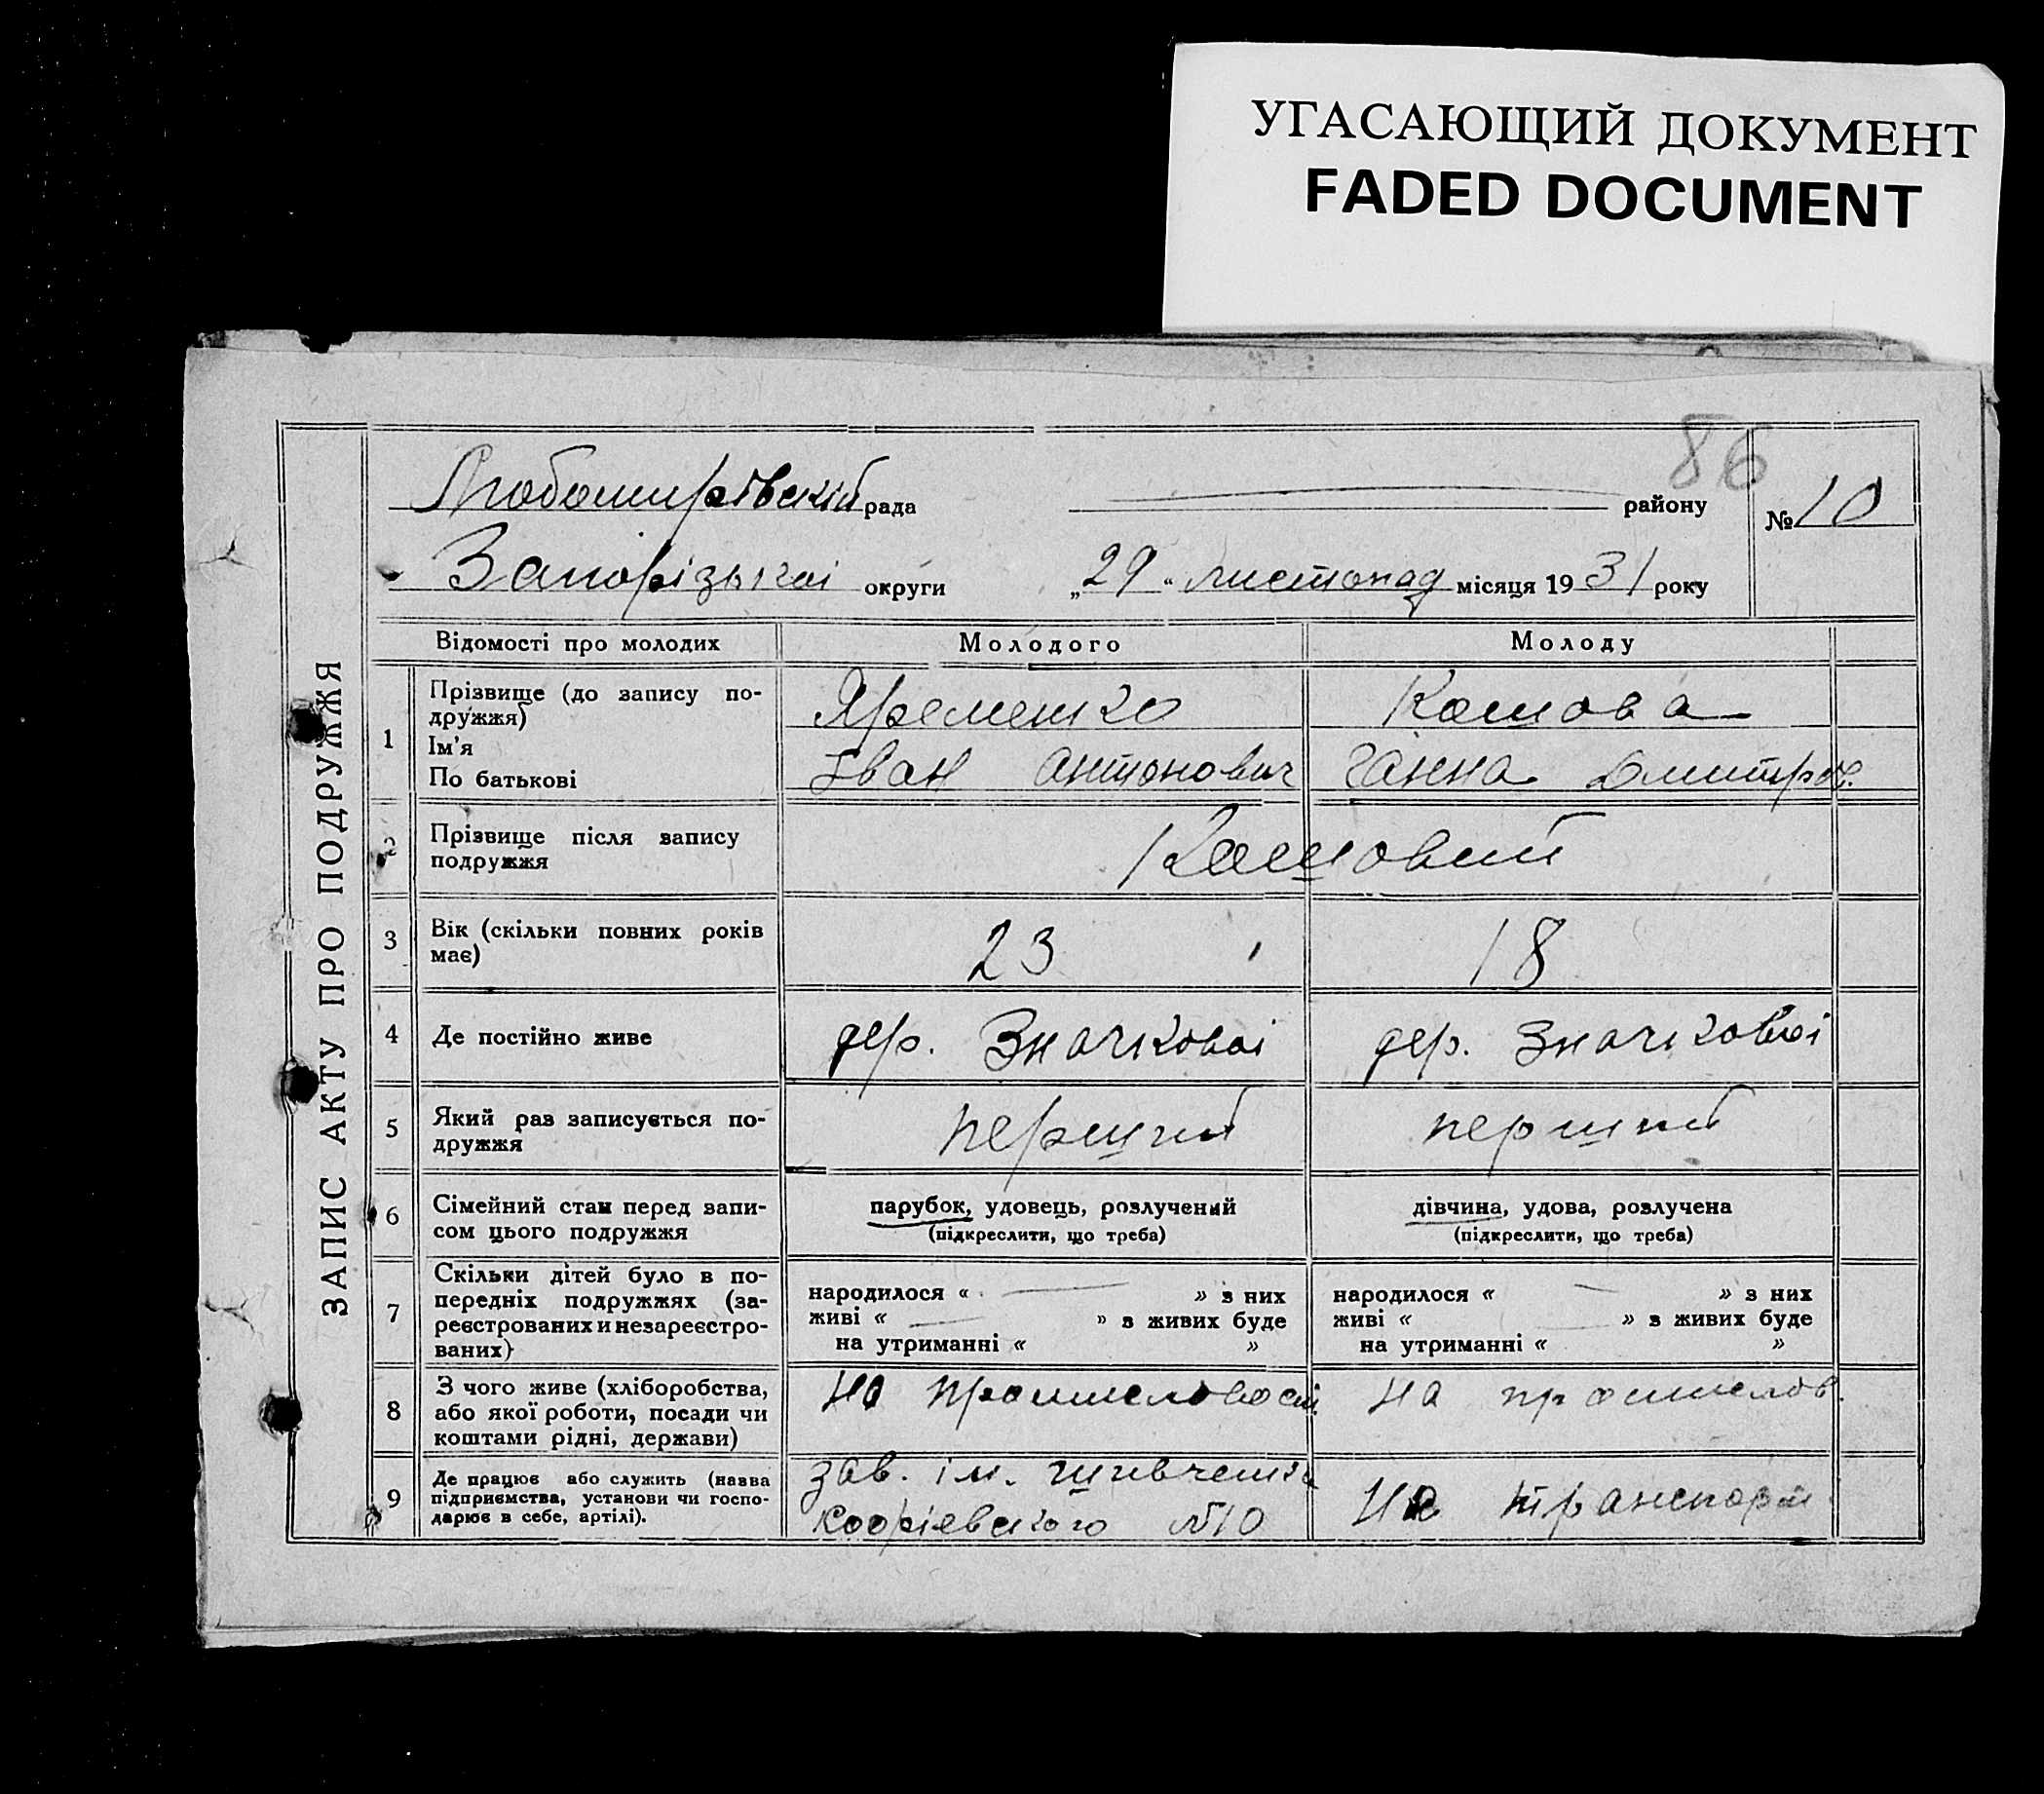 УГАСАЮЩИЙ ДОКУМЕНТ
FADED DOCUMENT
86
ЗАПИС АКТУ ПРО ПОДРУЖЖЯ
Любомирівскій рада району № 10
Запорізькоі округи „29“ листопад місяця 1931 року
Відомості про молодих Молодого Молоду
1 Прізвище (до запису по-
дружжя) Яременко Кошова
Ім'я
По батькові Іван Антонович Ганна Дмитров.
2 Прізвище після запису
подружжя Кошовий
3 Вік (скільки повних років
має) 23 18
4 Де постійно живе дер. Значковоі дер. Значковоі
5 Який раз записується по-
дружжя перший перший
6 Сімейний стан перед запи-
сом цього подружжя
парубок, удовець, розлучений
(підкреслити, що треба)
дівчина, удова, розлучена
(підкреслити, що треба)
7 Скільки дітей було в по-
передніх подружжях (за-
реєстрованих и незареєстро-
ваних)
народилося « » з них
живі « » з живих буде
на утриманні « »
народилося « » з них
живі « » з живих буде
на утриманні « »
8 З чого живе (хліборобства,
або якої роботи, посади чи
коштами рідні, держави)
на промисловост. на промислов.
9 Де працює або служить (назва
підприємства, установи чи госпо-
дарює в себе, артілі).
зав. ім. №10
на транспорт